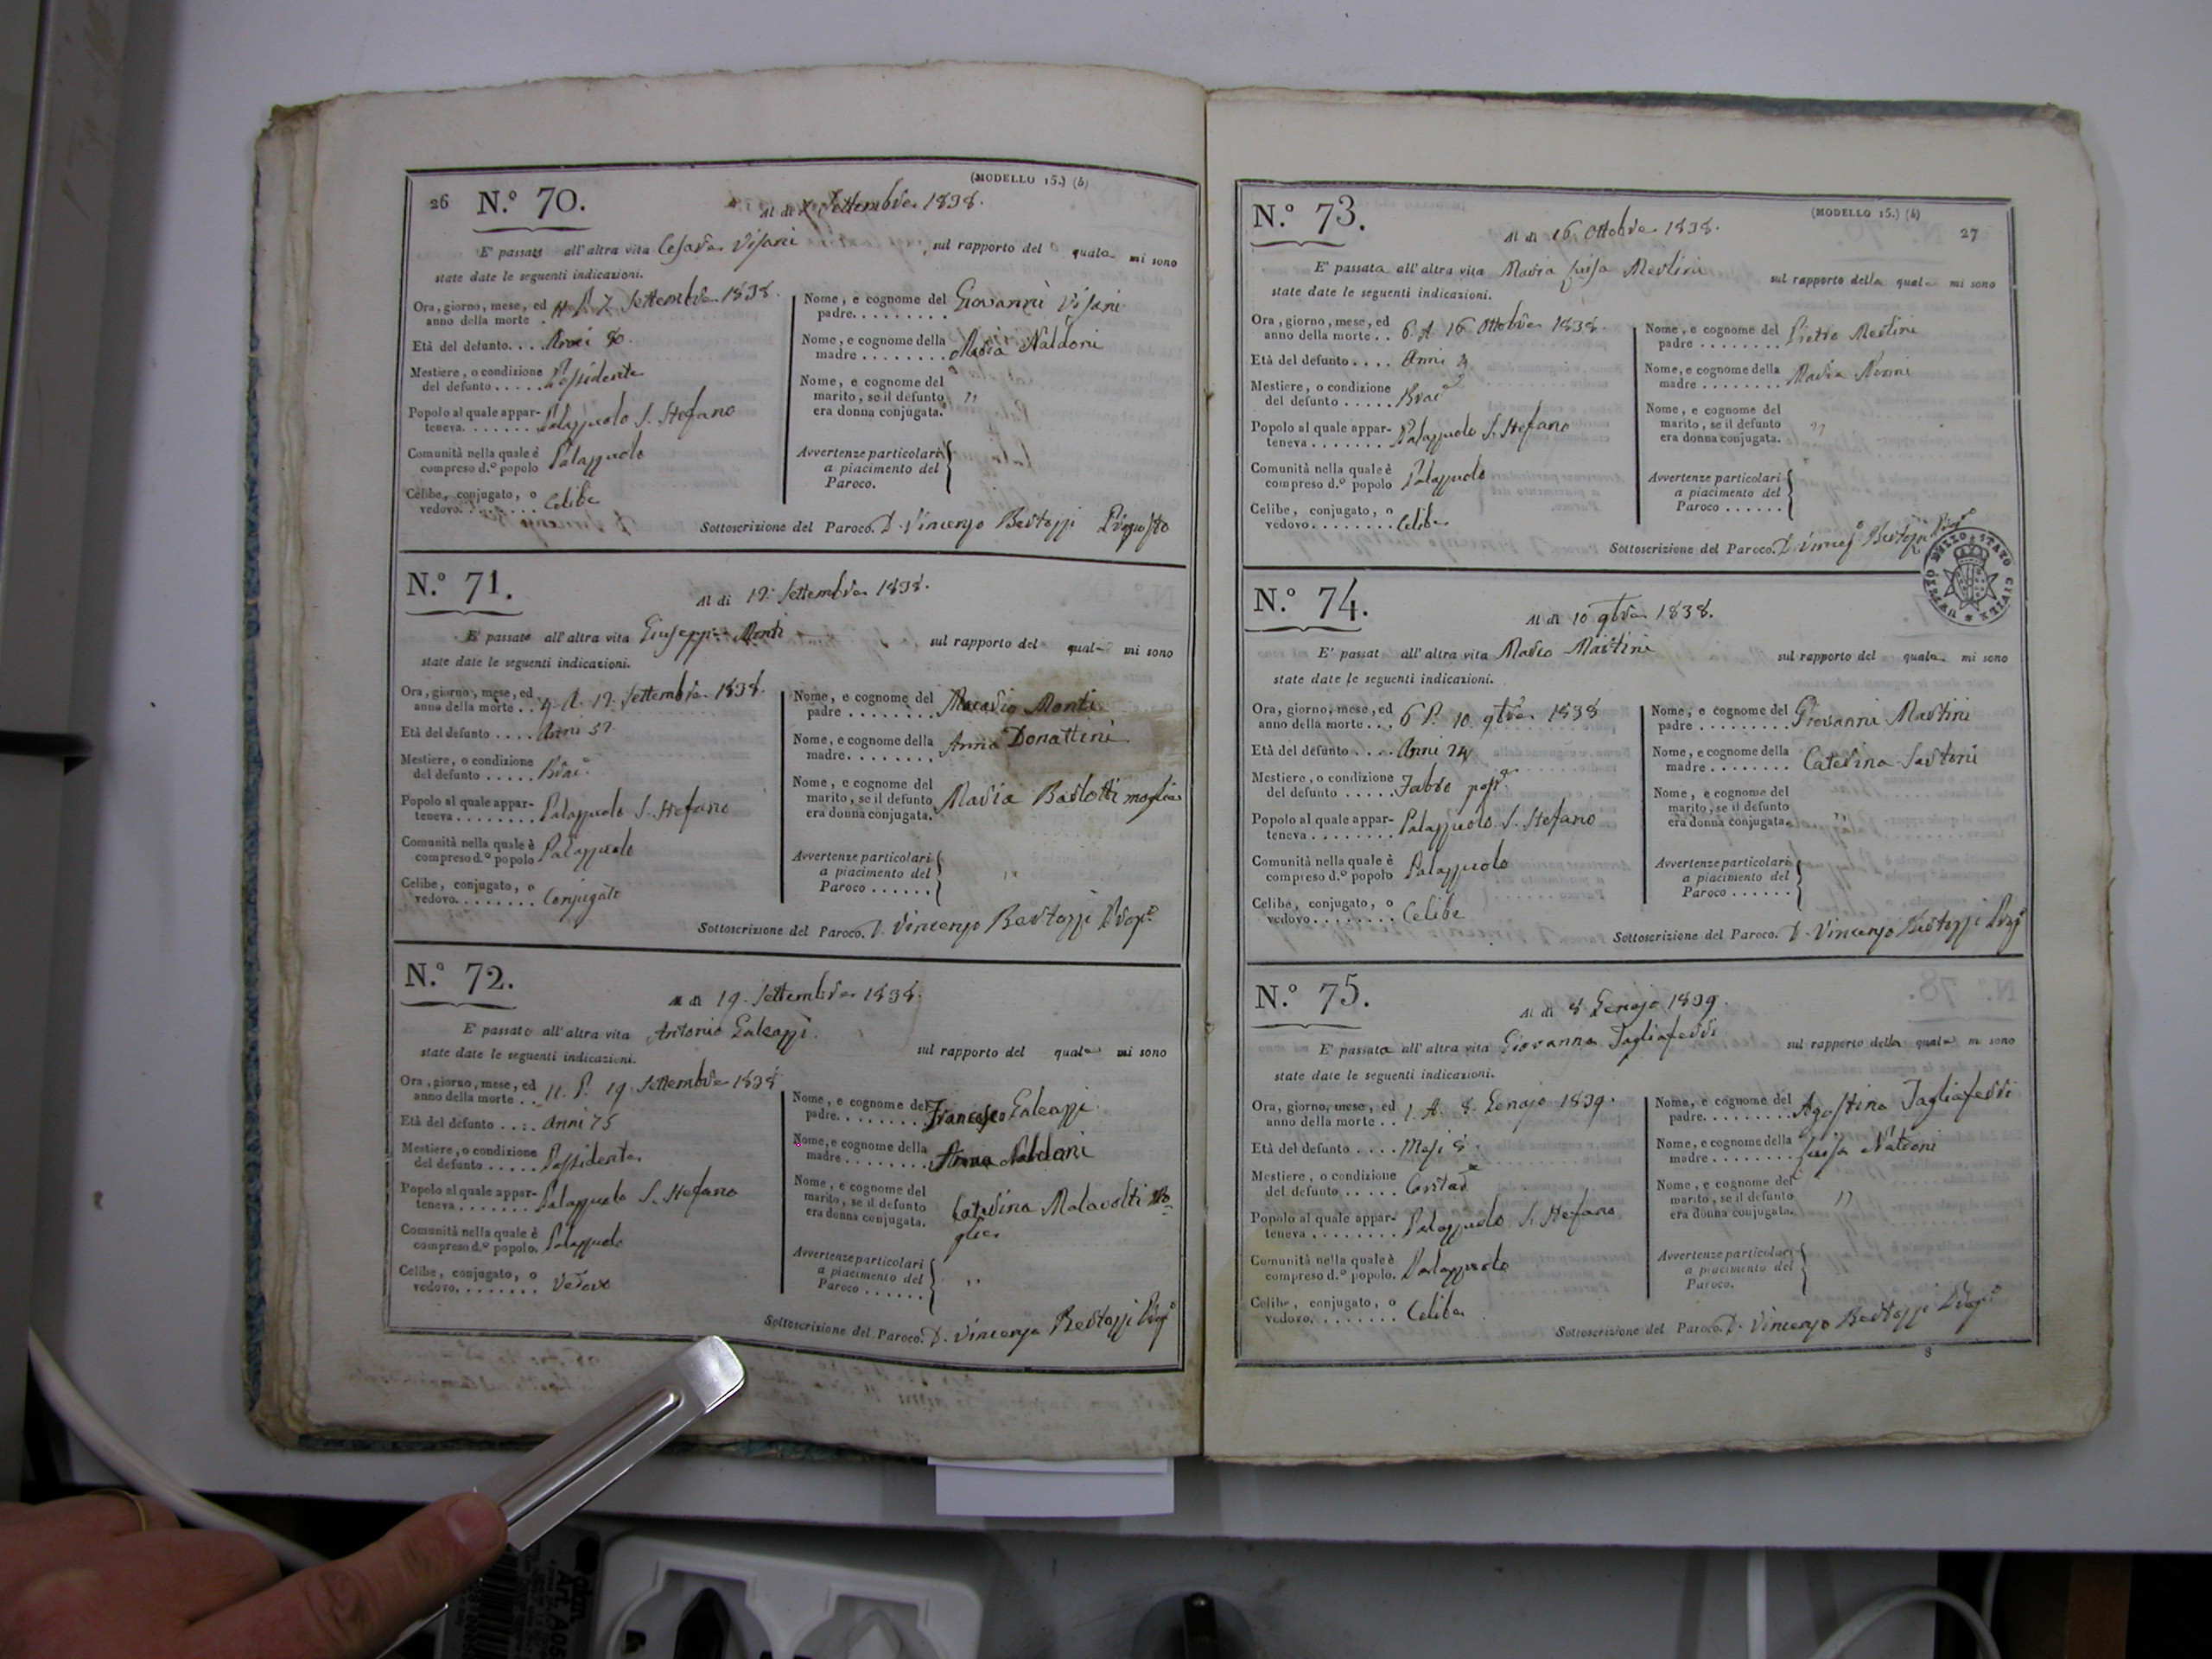 26 N.° 70. (MODELLO 15.) (b)
Al dì 7 Settembre 1838.
E' passato all'altra vita Cesare Visani sul rapporto del quale mi sono
state date le seguenti indicazioni.
Ora, giorno, mese, ed
anno della morte . 7 Settembre 1838.
Età del defunto. . . Anni 80.
Mestiere, o condizione
del defunto . . . . . Possidente
Popolo al quale appar-
teneva. . . . . . . . Palazzuolo S. Stefano
Comunità nella quale è
compreso d.° popolo Palazzuolo
Celibe, conjugato, o
vedovo. . . . . . . . Celibe
Nome, e cognome del
padre. . . . . . . . . Giovanni Visani
Nome, e cognome della
madre . . . . . . . . Maria Naldoni
Nome, e cognome del
marito, se il defunto
era donna conjugata. "
Avvertenze particolari
a piacimento del
Paroco.
Sottoscrizione del Paroco. D. Vincenzo Bertozzi Proposto
N.° 71.
Al dì 12. Settembre 1838.
E' passato all'altra vita Giuseppe Monti sul rapporto del quale mi sono
state date le seguenti indicazioni.
Ora, giorno, mese, ed
anno della morte . . 4. A. 12. Settembre 1838.
Età del defunto . . . . Anni 52.
Mestiere, o condizione
del defunto . . . . . Brac.e
Popolo al quale appar-
teneva . . . . . . . . Palazzuolo S. Stefano
Comunità nella quale è
compreso d.° popolo Palazzuolo
Celibe, conjugato, o
vedovo. . . . . . . . Conjugato
Nome, e cognome del
padre . . . . . . . . Monti
Nome, e cognome della
madre. . . . . . . . Anna Donattini
Nome, e cognome del
marito, se il defunto
era donna conjugata. Maria Barlotti moglie
Avvertenze particolari
a piacimento del
Paroco . . . . . . "
Sottoscrizione del Paroco. D. Vincenzo Bertozzi Prop.o
N.° 72.
Al dì 19. Settembre 1838.
E' passato all'altra vita Antonio Galeazzi. sul rapporto del quale mi sono
state date le seguenti indicazioni.
Ora, giorno, mese, ed
anno della morte . . 11. P. 19 Settembre 1838
Età del defunto . . . . Anni 75
Mestiere, o condizione
del defunto . . . . . Possidente
Popolo al quale appar-
teneva . . . . . . . Palazzuolo S. Stefano
Comunità nella quale è
compreso d.° popolo. Palazzuolo
Celibe, conjugato, o
vedovo. . . . . . . . Vedovo
Nome, e cognome del
padre. . . . . . . . . Francesco Galeazzi
Nome, e cognome della
madre. . . . . . . . . Anna Naldoni
Nome, e cognome del
marito, se il defunto
era donna conjugata. Caterina Malavolti Mo=
glie
Avvertenze particolari
a piacimento del
Paroco . . . . . . "
Sottoscrizione del Paroco. D. Vincenzo Bertozzi Prop.o
N.° 73. (MODELLO 15.) (b)
27
Al dì 16 Ottobre 1838.
E' passata all'altra vita Maria Luisa Merlini sul rapporto della quale mi sono
state date le seguenti indicazioni.
Ora, giorno, mese, ed
anno della morte . . 6. A. 16 Ottobre 1838.
Età del defunto . . . . Anni
Mestiere, o condizione
del defunto . . . . . Brac.e
Popolo al quale appar-
teneva . . . . . . . . Palazzuolo S. Stefano
Comunità nella quale è
compreso d.° popolo Palazzuolo
Celibe, conjugato, o
vedovo. . . . . . . . Celibe
Nome, e cognome del
padre . . . . . . . . Pietro Merlini
Nome, e cognome della
madre . . . . . . . . Maria
Nome, e cognome del
marito, se il defunto
era donna conjugata. "
Avvertenze particolari
a piacimento del
Paroco . . . . . .
Sottoscrizione del Paroco. D. Vincez.o Bertozzi Prop.o
N.° 74.
Al dì 10 9bre 1838.
E' passat all'altra vita Marco Martini sul rapporto del quale mi sono
state date le seguenti indicazioni.
Ora, giorno, mese, ed
anno della morte . . . 6 P. 10. 9bre 1838
Età del defunto . . . . Anni 24
Mestiere, o condizione
del defunto . . . . . Fabro poss.e
Popolo al quale appar-
teneva . . . . . . . . Palazzuolo S. Stefano
Comunità nella quale è
compreso d.° popolo Palazzuolo
Celibe, conjugato, o
vedovo . . . . . . . . Celibe
Nome, e cognome del
padre . . . . . . . . Giovanni Martini
Nome, e cognome della
madre . . . . . . . . Caterina Sartoni
Nome, e cognome del
marito, se il defunto
era donna conjugata. "
Avvertenze particolari
a piacimento del
Paroco . . . . . .
Sottoscrizione del Paroco. D. Vincenzo Bertozzi Prop.o
N.° 75.
Al dì 8 Genajo 1839.
E' passata all'altra vita Giovanna Tagliaferri sul rapporto della quale mi sono
state date le seguenti indicazioni.
Ora, giorno, mese, ed
anno della morte . . 1. A. 8. Genajo 1839.
Età del defunto . . . . Mesi 8.
Mestiere, o condizione
del defunto . . . . . . Contad.e
Popolo al quale appar-
teneva . . . . . . . . Palazzuolo S. Stefano
Comunità nella quale è
compreso d.° popolo. Palazzuolo
Celibe, conjugato, o
vedovo. . . . . . . . Celibe
Nome, e cognome del
padre. . . . . . . . . Agostino Tagliaferri
Nome, e cognome della
madre . . . . . . . . Luisa
Nome, e cognome del
marito, se il defunto
era donna conjugata. "
Avvertenze particolari
a piacimento del
Paroco.
Sottoscrizione del Paroco. D. Vincenzo Bertozzi Prop.o
8